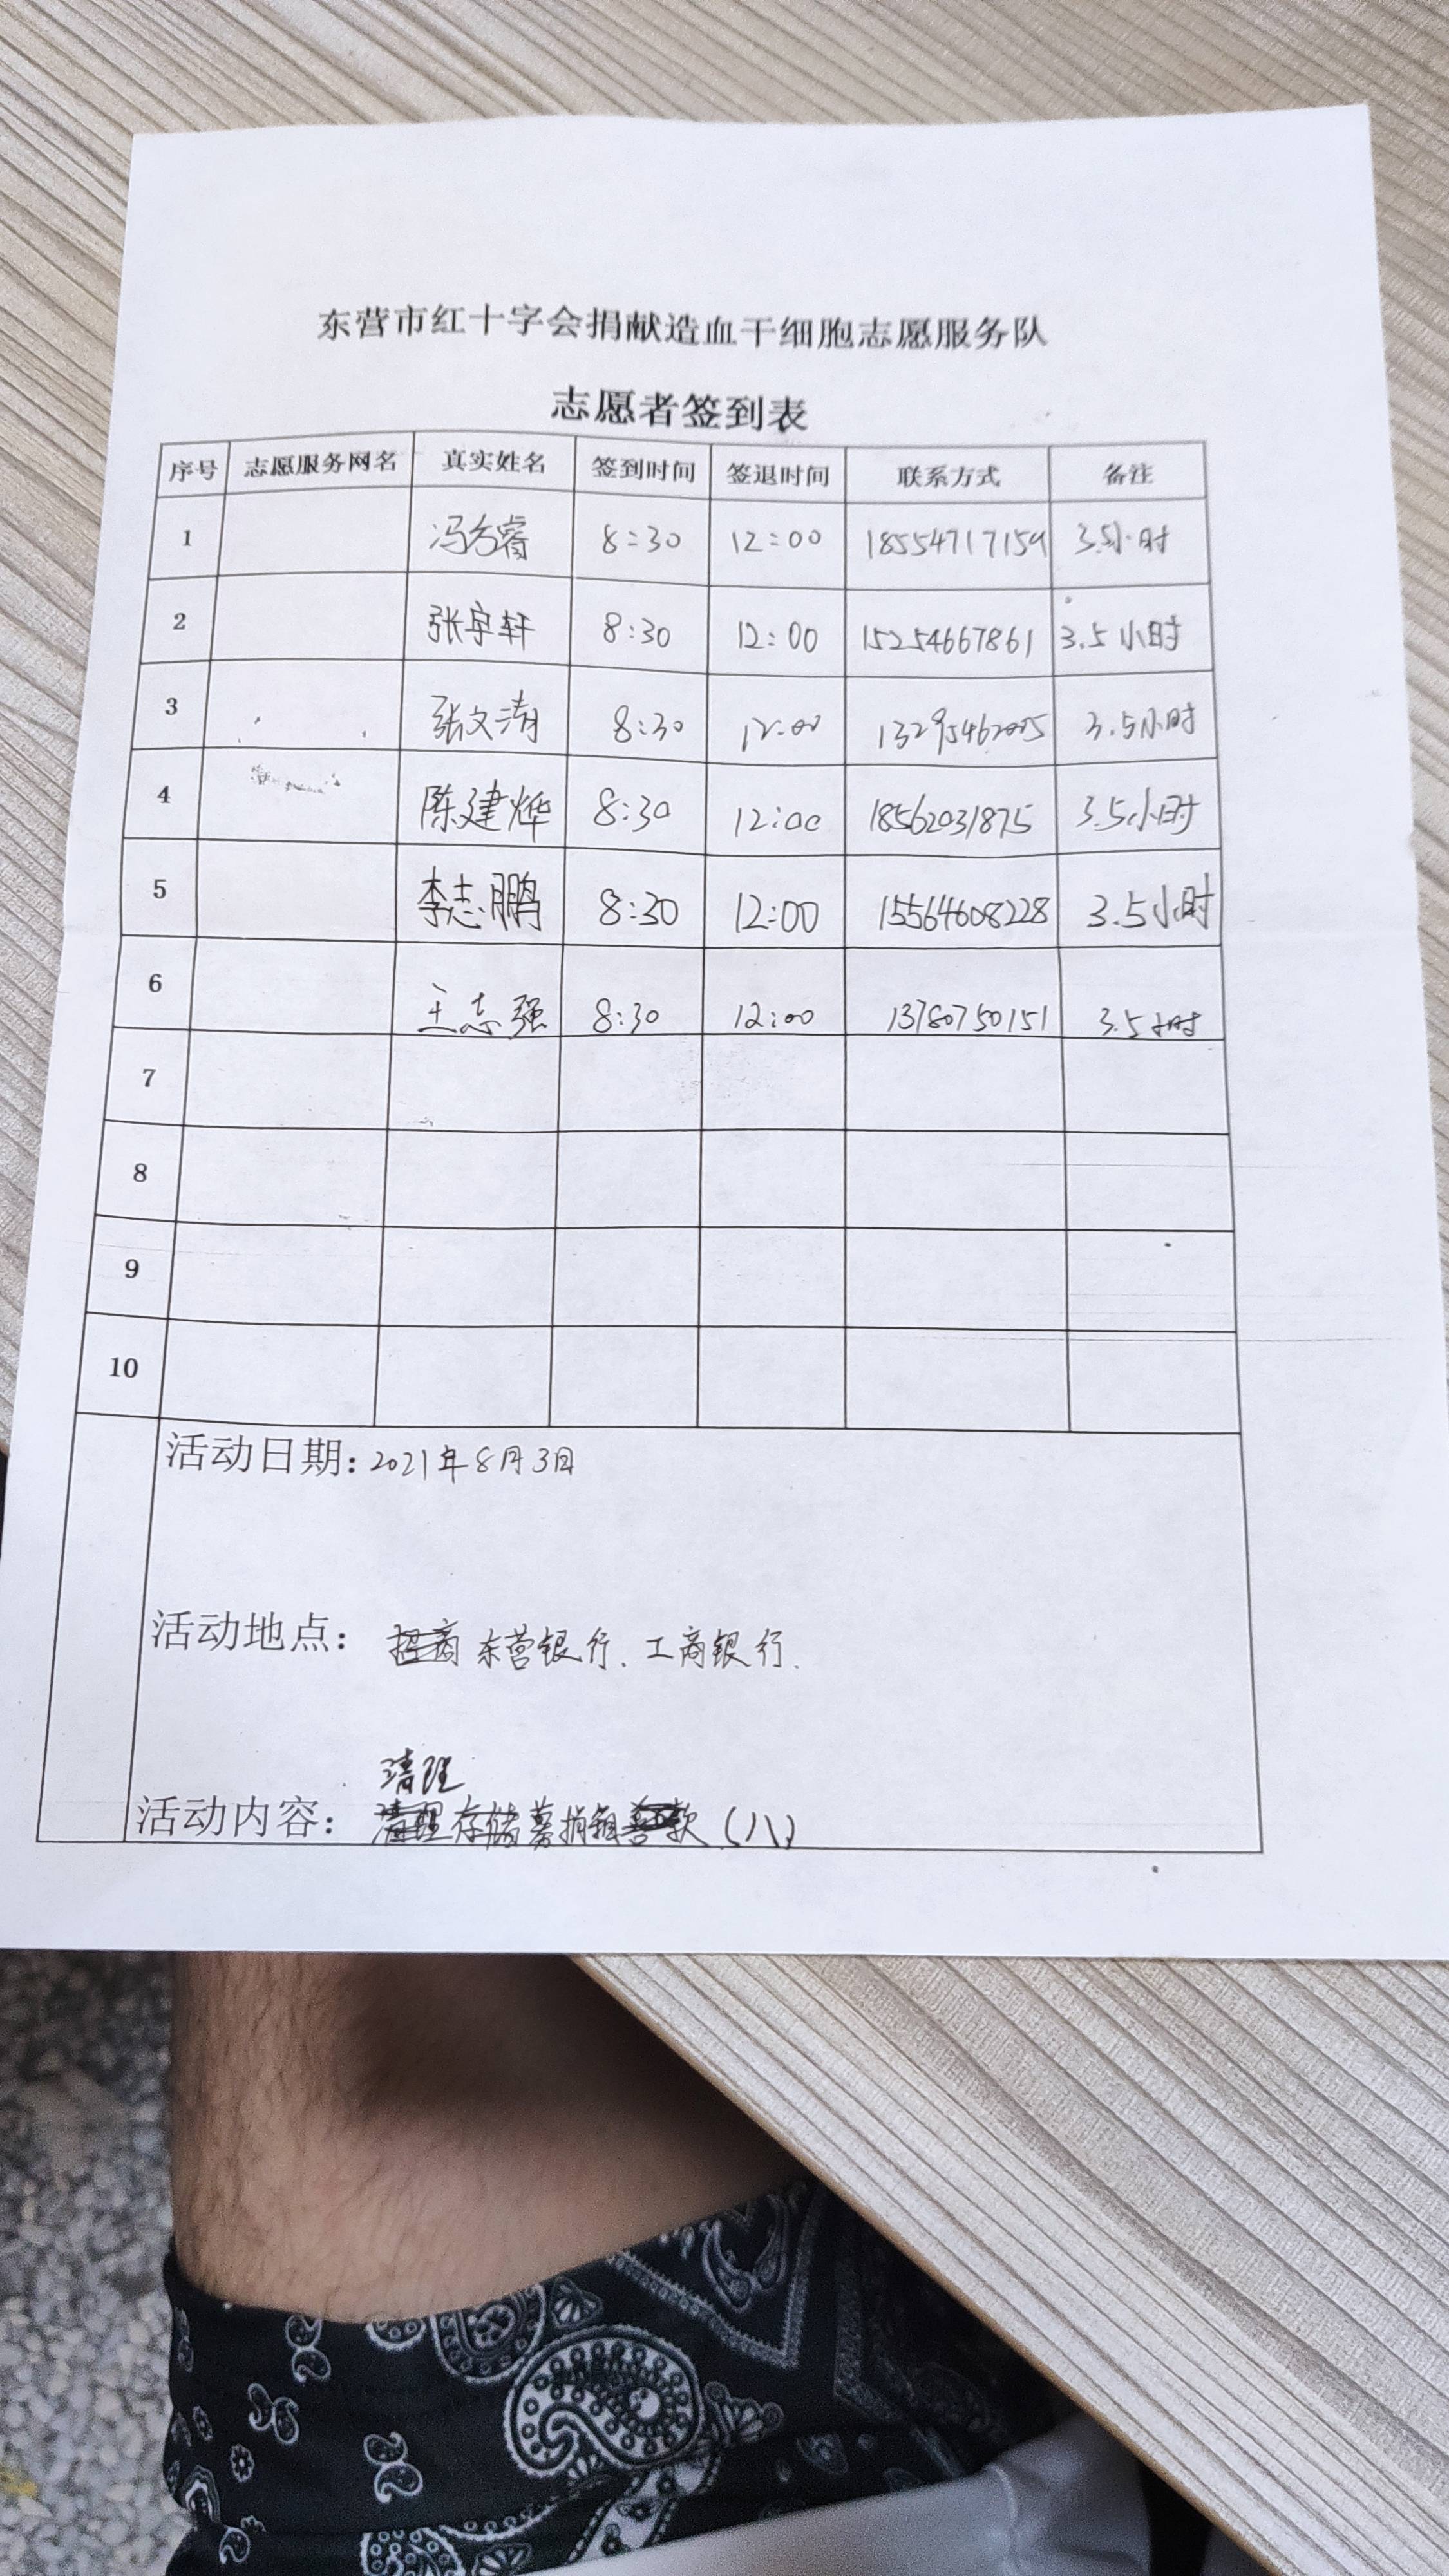 东营市红十字会捐献造血干细胞志愿服务队
志愿者签到表
序号 志愿服务网名 真实姓名 签到时间 签退时间 联系方式 备注
1 冯 睿 8:30 12:00 18554717159 3.5小时
2 张宇轩 8:30 12:00 15254667861 3.5小时
3 张文涛 8:30 12:00 3.5小时
4 陈建烨 8:30 12:00 18562031875 3.5小时
5 李志鹏 8:30 12:00 15564608228 3.5小时
6 王志强 8:30 12:00 13780750151 3.5小时
7
8
9
10
活动日期: 2021年8月3日
活动地点: 招商 东营银行、工商银行、
清理
活动内容: 清理存储募捐箱善款(八)